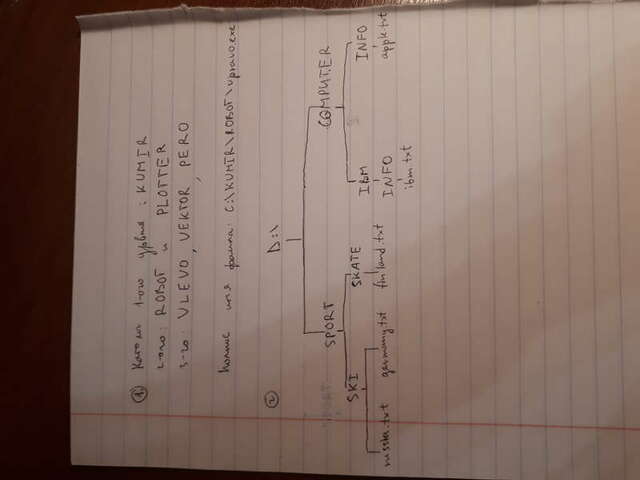 1. Каталог 1-ого уровня: KUMIR
2-ого: ROBOT и PLOTTER
3-го: VLEVO, VEKTOR, PERO
Полное имя файла: C:\KUMIR\ROBOT\vpravo.exe
2
D:\
SPORT COMPUTER
SKI SKATE IBM INFO
russia.txt germany.txt finland.txt INFO apple.txt
ibm.txt